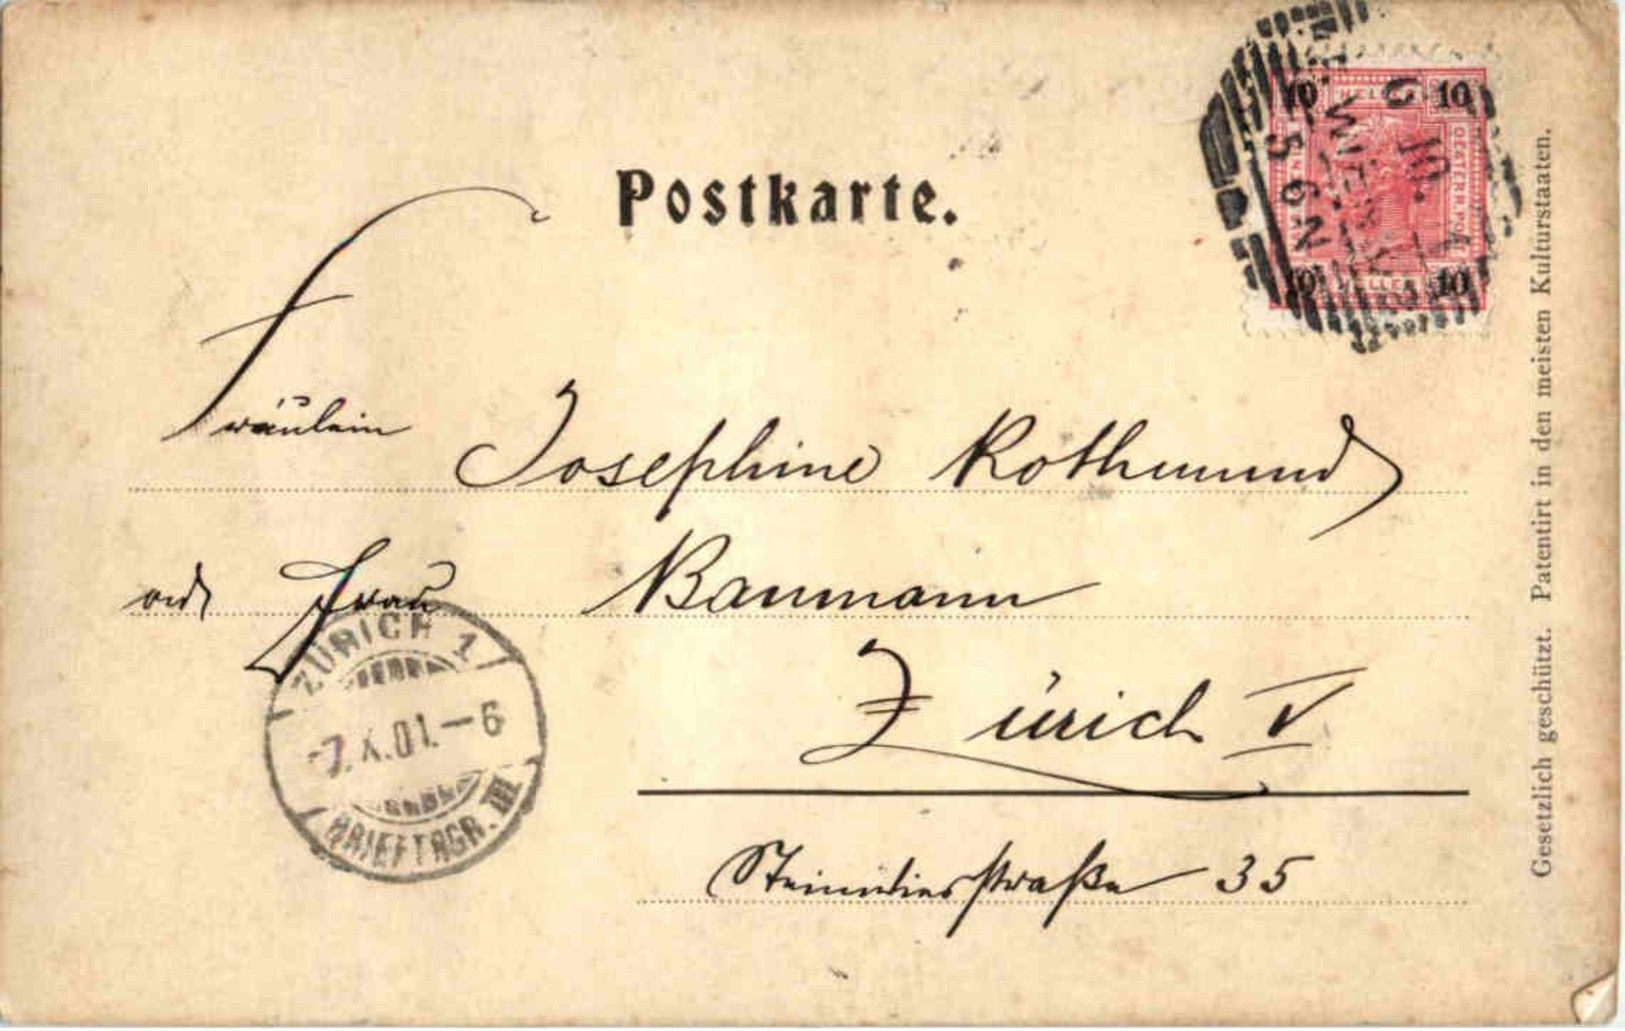 Postkarte.
10 HELLER 10
OESTERR. POST
10 HELLER 10
WIEN
5 6 N
Gesetzlich geschützt. Patentirt in den meisten Kulturstaaten.
Fräulein Josephine Rothmund
Frau Baumann
Zürich V
straße 35
ZÜRICH 1
-7.X.01.-6
BRIEFTRGR. III